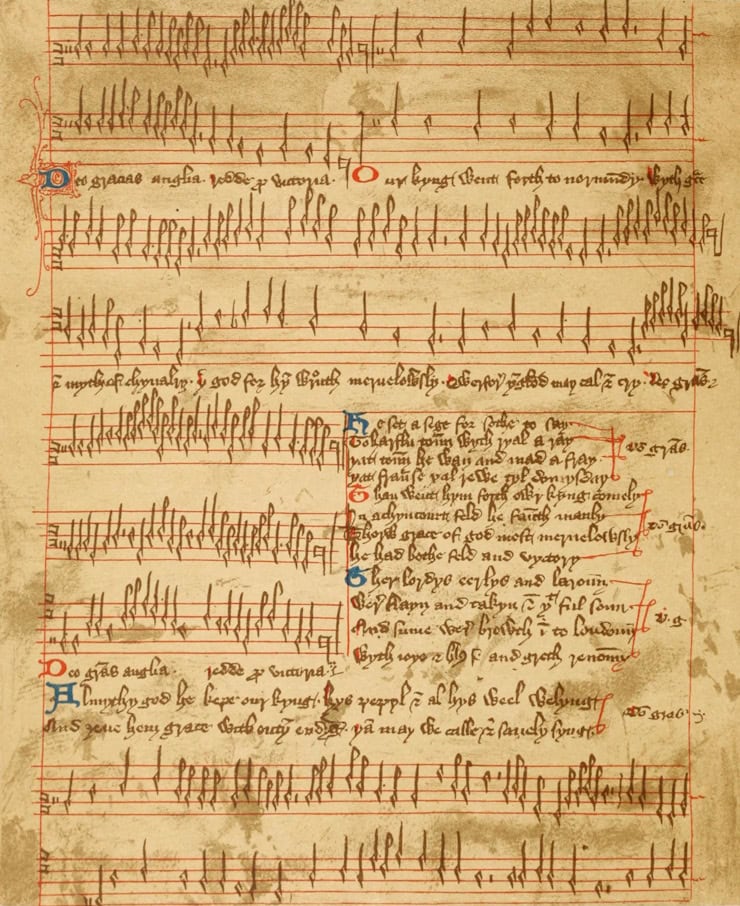 Deo gracias anglia. redde p victoria.
Our kyng went forth to normandy. Wyth grace
⁊ myth of chyvalry. þ god for hym wrouth mervelowsly. Qwerfor ynglond may cal ⁊ cry. Deo gracias
He set a sege for sothe to say
To harflu toun wyth ryal aray
yat toun he wan and mad a fray
yat fraunse xal rewe tyl domysday
Deo gras.
Than went hym forth owr kyng comely
In achyncourt feld he fauth manly
Thorw grace of god most mervelowsly
He had bothe feld and vyctory
Ther lordys eerlys and baroun
Wer slayn and takyn ⁊ yt ful soun
And sume wer browth in to loundoun
Wyth ioye ⁊ and greth renoun
D. g
Deo gras anglia. redde p victoria.
Almythy god he kepe our kyng. hys peppl ⁊ al hys weel welyng
And zeve hem grace withoutyn endyng. yan may we calle ⁊ savely syng.
Deo gras